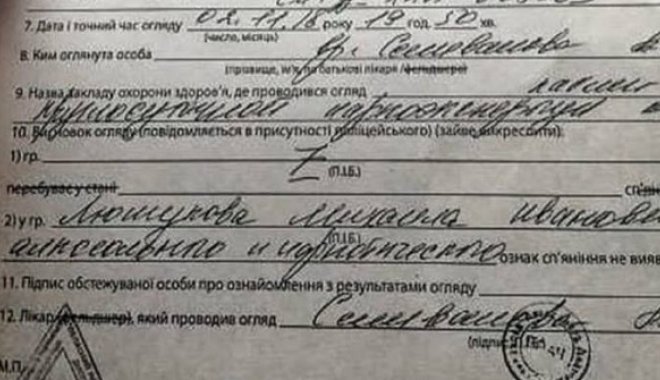 7. Дата і точний час огляду 02.11.16 року 19 год. 50 хв.
(число, місяць)
8. Ким оглянута особа вр. Селиванова
(прізвище, ім'я, по батькові лікаря /фельдшера)
9. Назва закладу охорони здоров'я, де проводився огляд
наркоэкспертизы
10. Висновок огляду (повідомляється в присутності поліцейського) (зайве викреслити):
1) гр. Z
(П.І.Б.)
перебуває у стані
2) у гр. Михаила Иванови
(П.І.Б.)
алкогольного и наркотического ознак сп'яніння не вияв
11. Підпис обстежуваної особи про ознайомлення з результатами огляду
12. Лікар (фельдшер), який проводив огляд Селиванова
(підпис)
М.П.